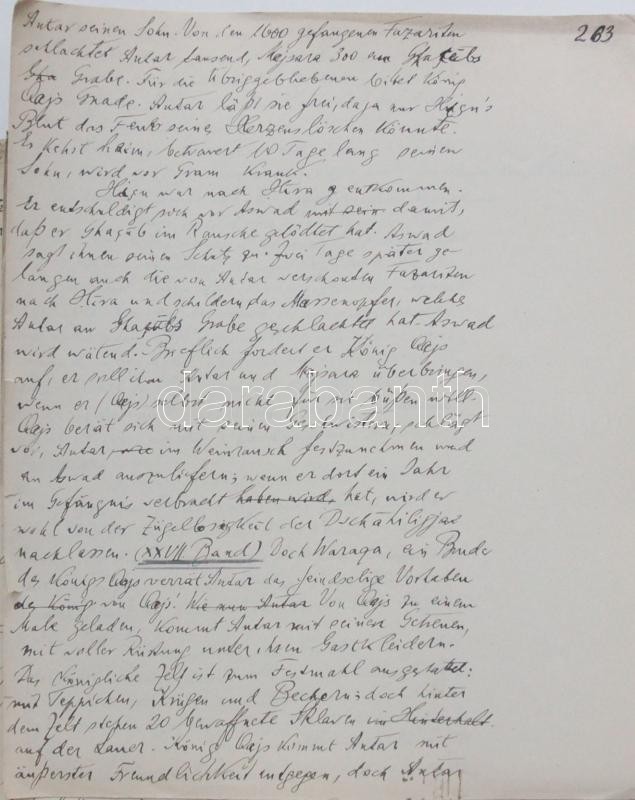 263
Antar seinen Sohn. Von den 1600 gefangenen Fazariten
schlachtet Antar tausend, Mejsara 300 am Ghaḍûbs
Gha Grabe. Für die Übriggebliebenen bitet König
Qajs Gnade. Antar läßt sie frei, da ja nur
Blut das Feuer seines Herzens löschen könnte.
Er kehrt heim, betrauert 10 Tage lang seinen
Sohn, wird vor Gram krank.
war nach Hira entkommen.
Er entschuldigt sich vor Aswad mit sein damit,
daß er im Rausche getödtet hat. Aswad
sagt ihnen seinen Schutz zu. Zwei Tage später ge-
langen auch die von Antar verschonten Fazariten
nach Hira und schildern das Massenopfer, welche
Antar am Grabe geschlachtet hat. Aswad
wird wütend. Brieflich fordert er König Qajs
auf, er soll ihm Antar und Mejsara überbringen,
wenn er (Qajs) selbst nicht für sie büßen will.
Qajs berät sich mit seinen Geschwistern, schlägt
vor, Antar im Weinrausch festzunehmen und
an Aswad auszuliefern; wenn er dort ein Jahr
im Gefängnis verbracht haben wird, hat, wird er
wohl von der Zügellosigkeit der
nachlassen. (XXVII Band) Doch Waraqa, ein Bruder
des Königs Qajs verrät Antar das feindselige Vorhaben
des König von Qajs! Wie nun Antar Von Qajs zu einem
Male geladen, kommt Antar mit seinen Getreuen,
mit voller Rüstung unter ihren Gastkleidern.
Das königliche Zelt ist zum Festmahl ausgestattet:
mit Teppichen, Krügen und Bechern; doch hinter
dem Zelt stehen 20 bewaffnete Sklaven im Hinterhalt
auf der Lauer. König Qajs kommt Antar mit
äußerster Freundlichkeit entgegen, doch Antar
darabanth